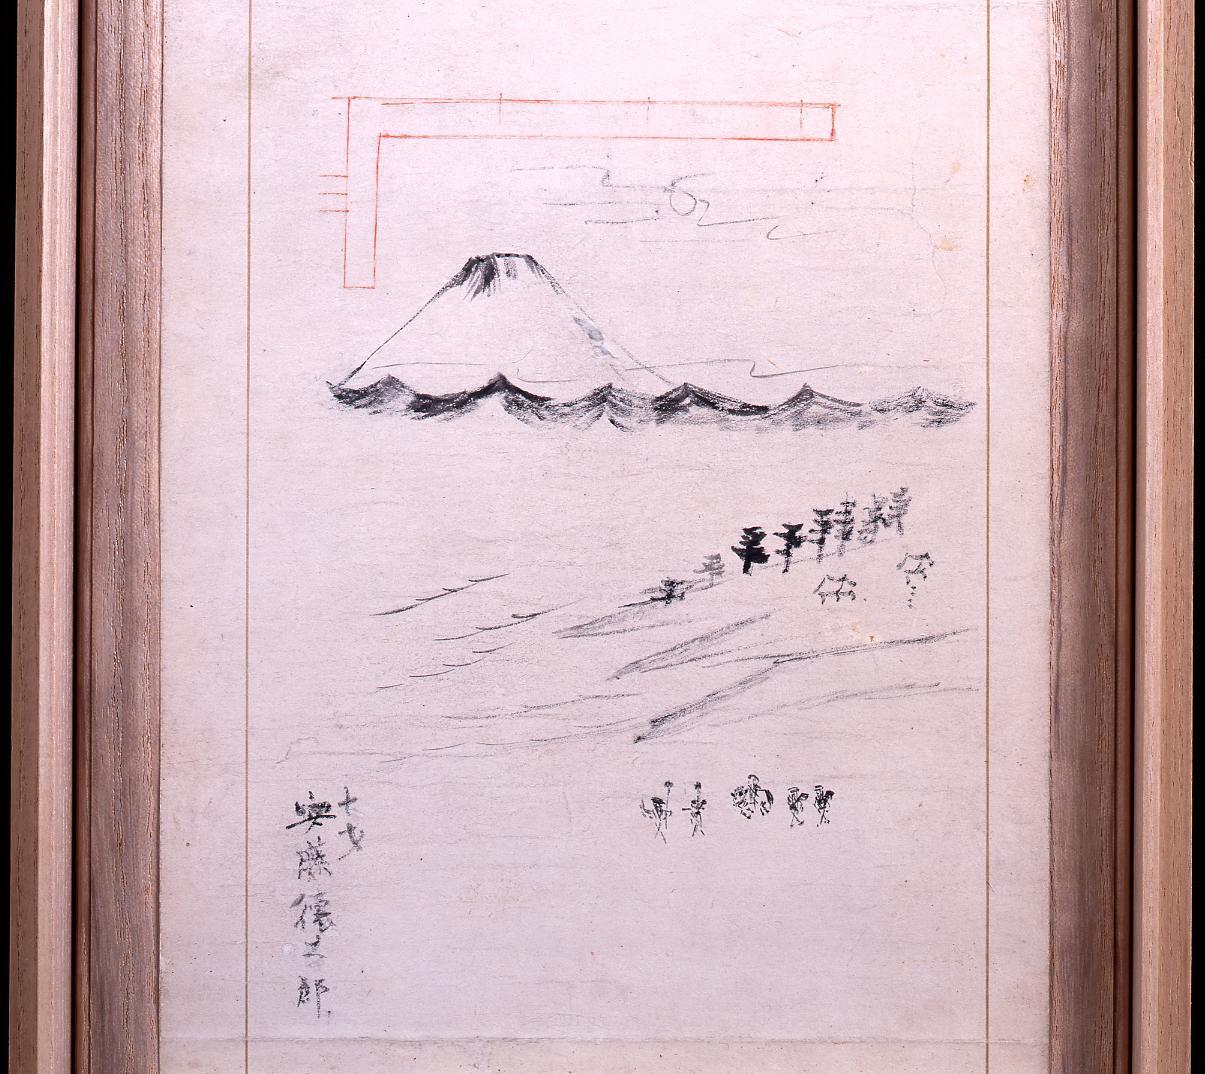 十才
安藤徳太郎